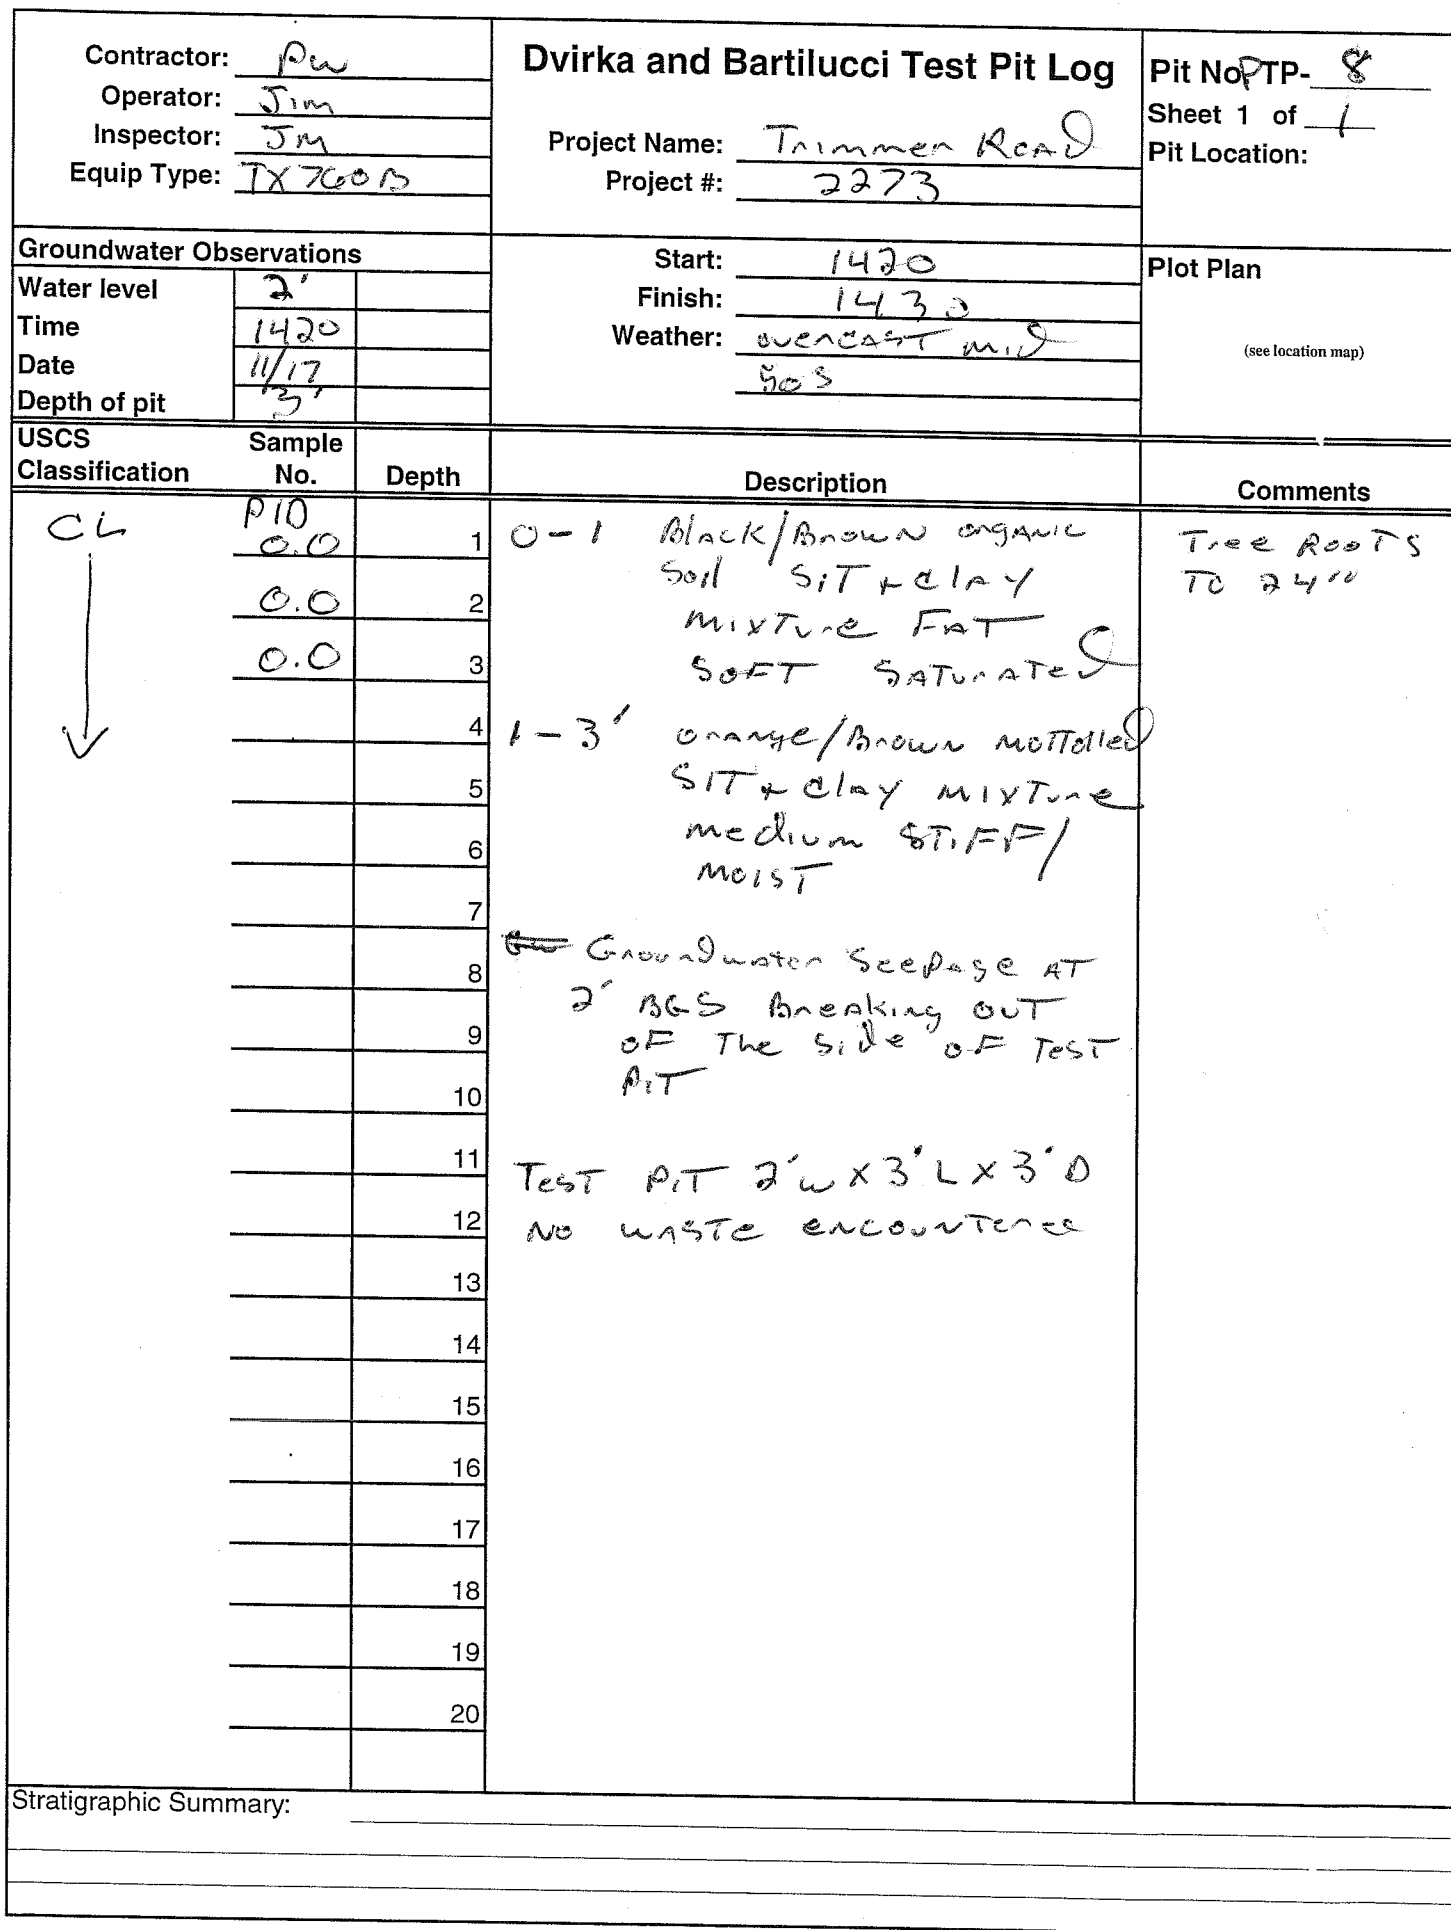 Contractor: PW
Operator: Jim
Inspector: JM
Equip Type: TX760B
Dvirka and Bartilucci Test Pit Log
Project Name: Trimmer Road
Project #: 2273
Pit No PTP- 8
Sheet 1 of 1
Pit Location:
Groundwater Observations
Water level 2'
Time 1420
Date 11/17
Depth of pit 3'
Start: 1420
Finish: 1430
Weather: overcast mid
50s
Plot Plan
(see location map)
USCS Classification
Sample No.
Depth
Description
Comments
CL
PID
0.0 1
0.0 2
0.0 3
4
5
6
7
8
9
10
11
12
13
14
15
16
17
18
19
20
0-1 Black/Brown organic
Soil SiT + clay
mixture FAT
SOFT SATURATED
1-3' orange/Brown moTTolled
SIT + clay mixture
medium STIFF/
MOIST
Groundwater Seepage AT
2' BGS Breaking OUT
OF The Side OF TEST
PIT
TEST PIT 2'W X 3'L X 3'D
NO WASTE encountered
Tree RooTS
TO 24"
Stratigraphic Summary: